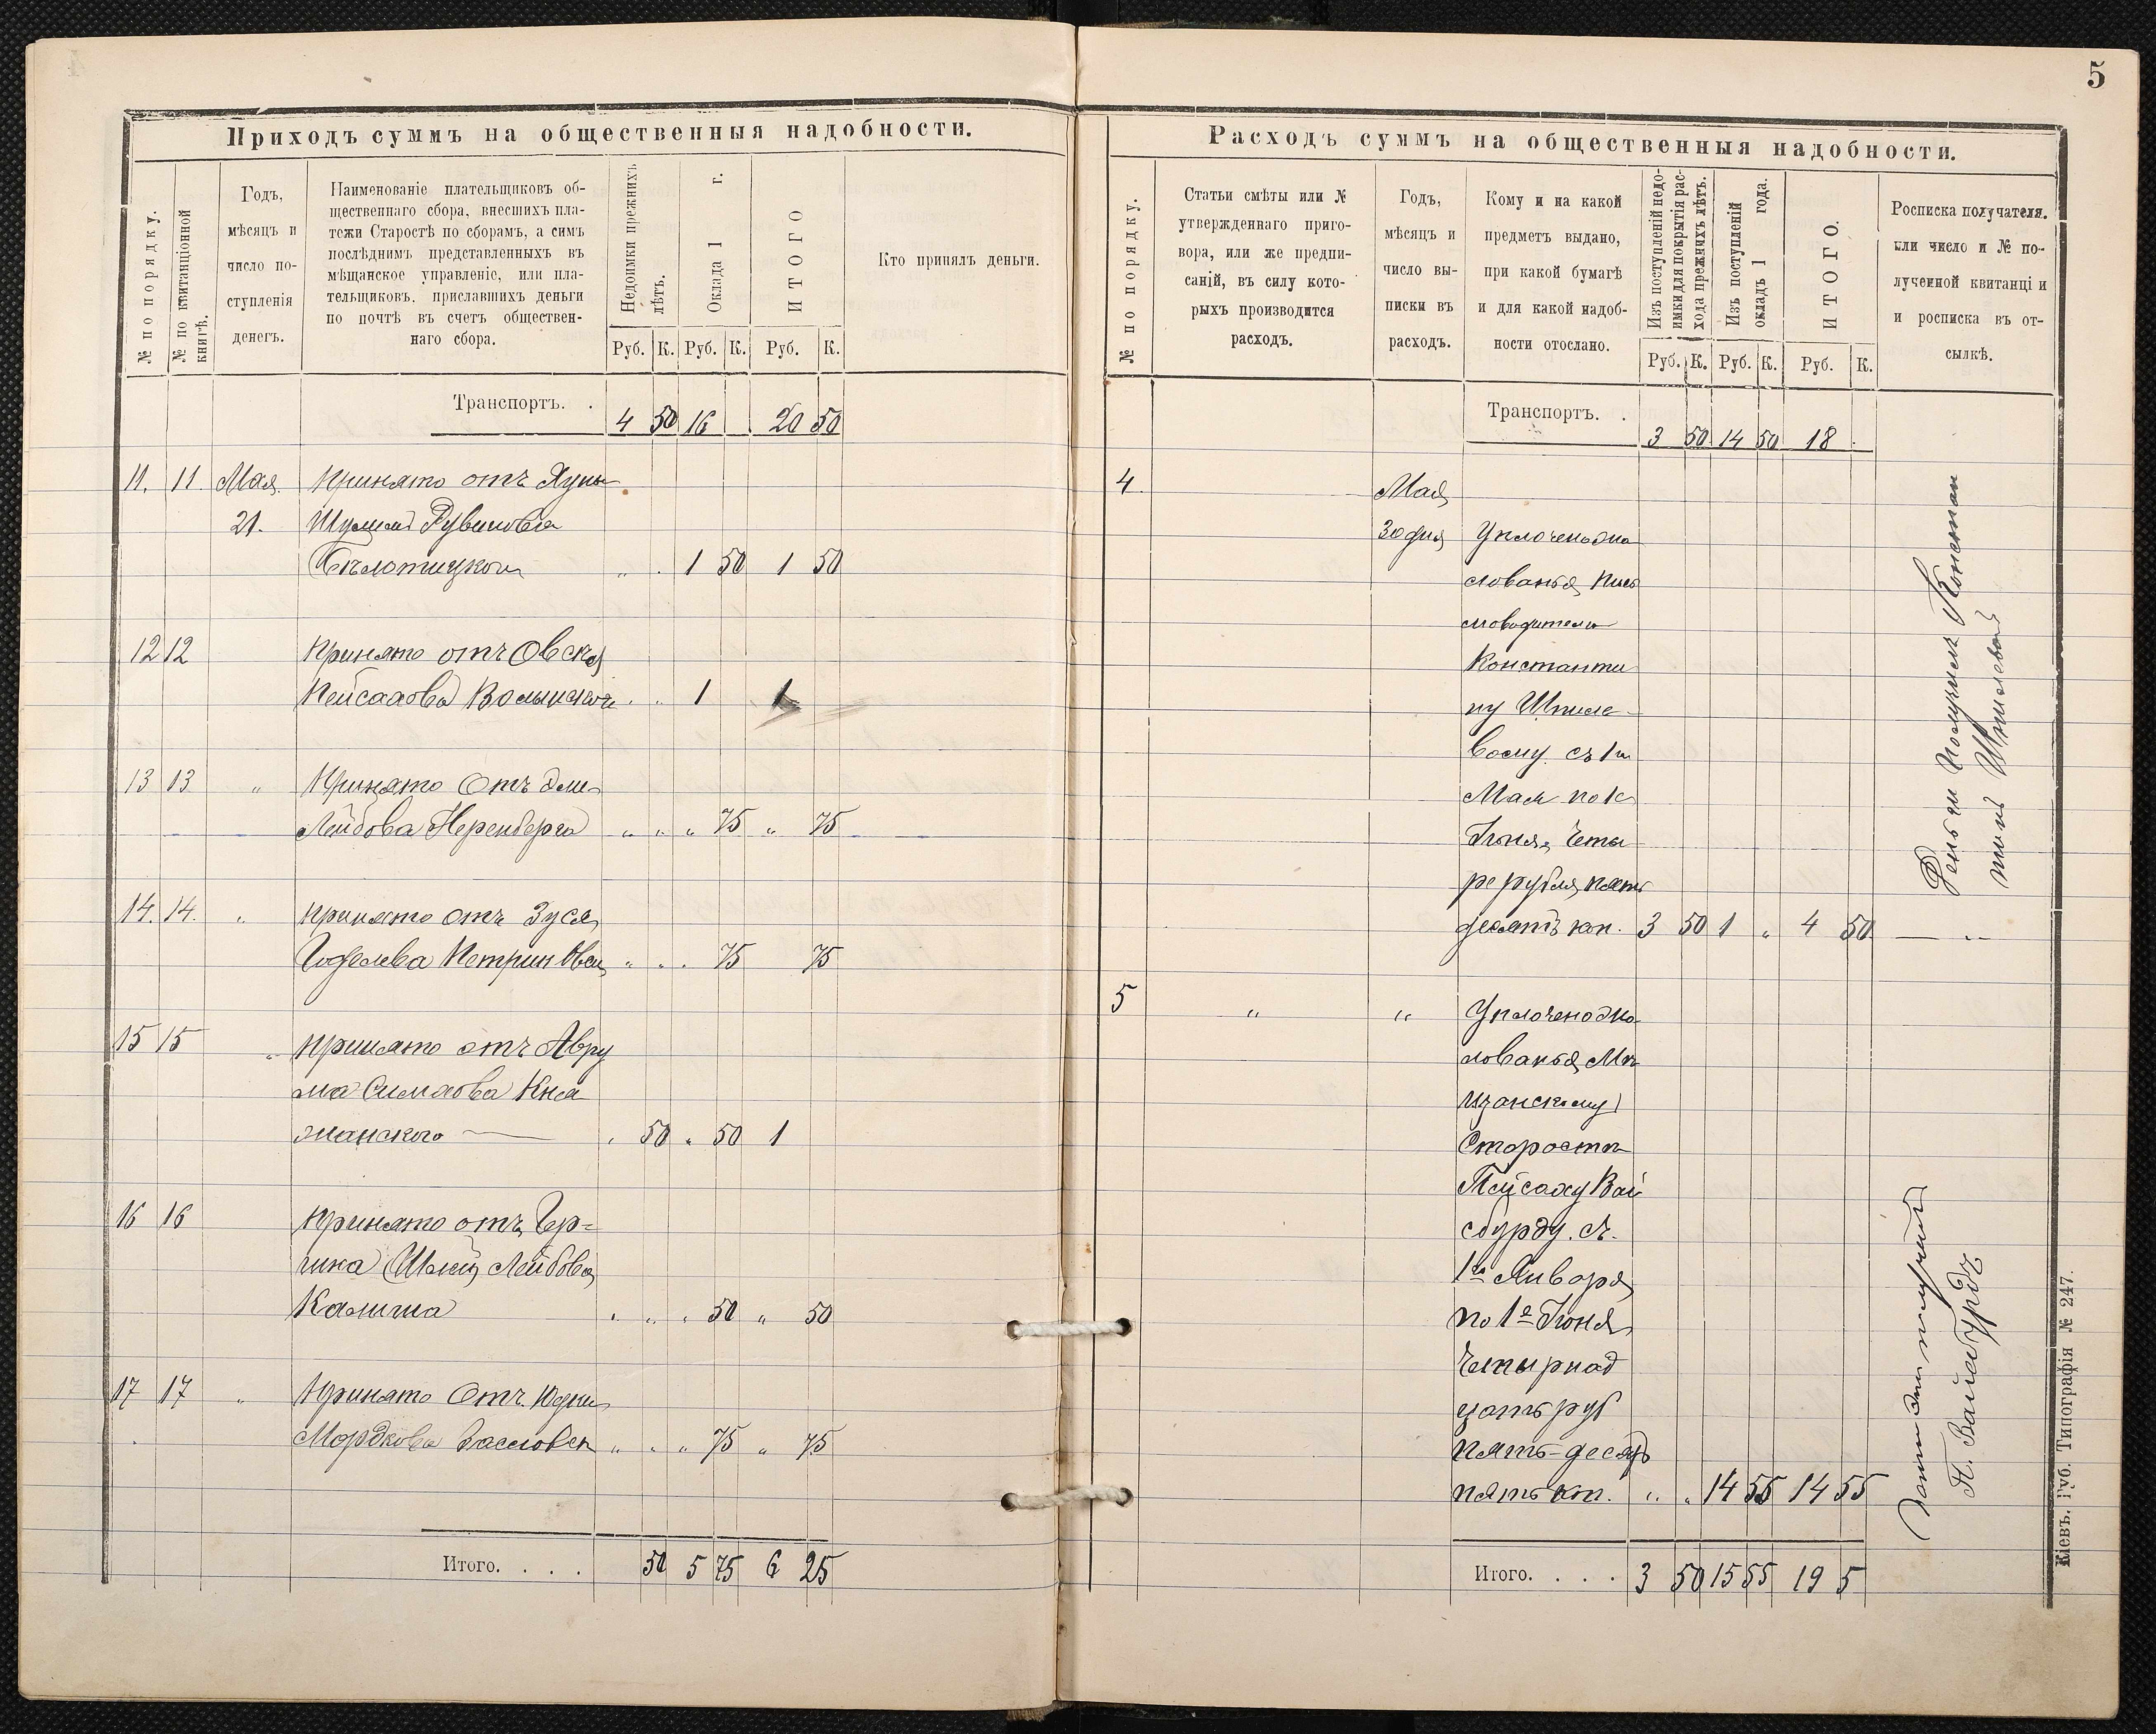 5
Приходъ суммъ на общественныя надобности.
№ по порядку.
№ по квитанціонной книгѣ.
Годъ,
мѣсяцъ и
число по-
ступленія
денегъ.
Наименованіе плательщиковъ об-
щественнаго сбора, внесшихъ пла-
тежи Старостѣ по сборамъ, а симъ
послѣднимъ представленныхъ въ
мѣщанское управленіе, или пла-
тельщиковъ, приславшихъ деньги
по почтѣ въ счетъ обществен-
наго сбора.
Недоимки прежнихъ
лѣтъ.
Оклада 1 г.
ИТОГО
Кто принялъ деньги.
Руб. К. Руб. К. Руб. К.
Транспортъ. . 4 50 16 20 50
11. 11. Мая. Принято отъ
21. Шулима Рувинова
1 50 1 50
12 12 Принято отъ Овсея
Пейсахова 1 1
13 13 " Принято отъ
Лейбова Неренберга " " " 75 " 75
14. 14. " Принято отъ Зуся
75 75
15 15 " Принято отъ Авру
ма Симхова Кня
жанского — 50 " 50 1
16 16 Принято отъ Гер=
Лейбова
" " " 50 " 50
17 17 " Принято отъ
Мордкова " " " 75 " 75
Итого. . . . 50 5 75 6 25
Расходъ суммъ на общественныя надобности.
№ по порядку.
Статьи смѣты или №
утвержденнаго приго-
вора, или же предпи-
саній, въ силу кото-
рыхъ производится
расходъ.
Годъ,
мѣсяцъ и
число вы-
писки въ
расходъ.
Кому и на какой
предметъ выдано,
при какой бумагѣ
и для какой надоб-
ности отослано.
Изъ поступленій недо-
имки для покрытія рас-
хода прежнихъ лѣтъ.
Изъ поступленій
окладъ 1 года.
ИТОГО.
Росписка получателя.
или число и № по-
лученной квитанціи
и росписка въ от-
сылкѣ.
Руб. К. Руб. К. Руб. К.
Транспортъ. . 3 50 14 50 18
4. Мая
30 дня Уплочено жа
лованья Пись
моводителю
Константи
ну Шпиле-
вому съ 1го
Мая по 1е
Іюня, Четы
ре рубля пять
десятъ коп. 3 50 1 " 4 50 — " —
Деньги получилъ Констан
тинъ Шпилевой
5 " " Уплочено жа
лованья Мѣ
щанскому
Старостѣ
Пейсаху Вай
сбурду. съ.
1го Января
по 1е Іюня
Четырнад
цать руб
пять-десят
пять коп. " " 14 55 14 55
П. Вайсбурдъ
Итого. . . . 3 50 15 55 19 5
Кіевъ. Губ. Типографія № 247.